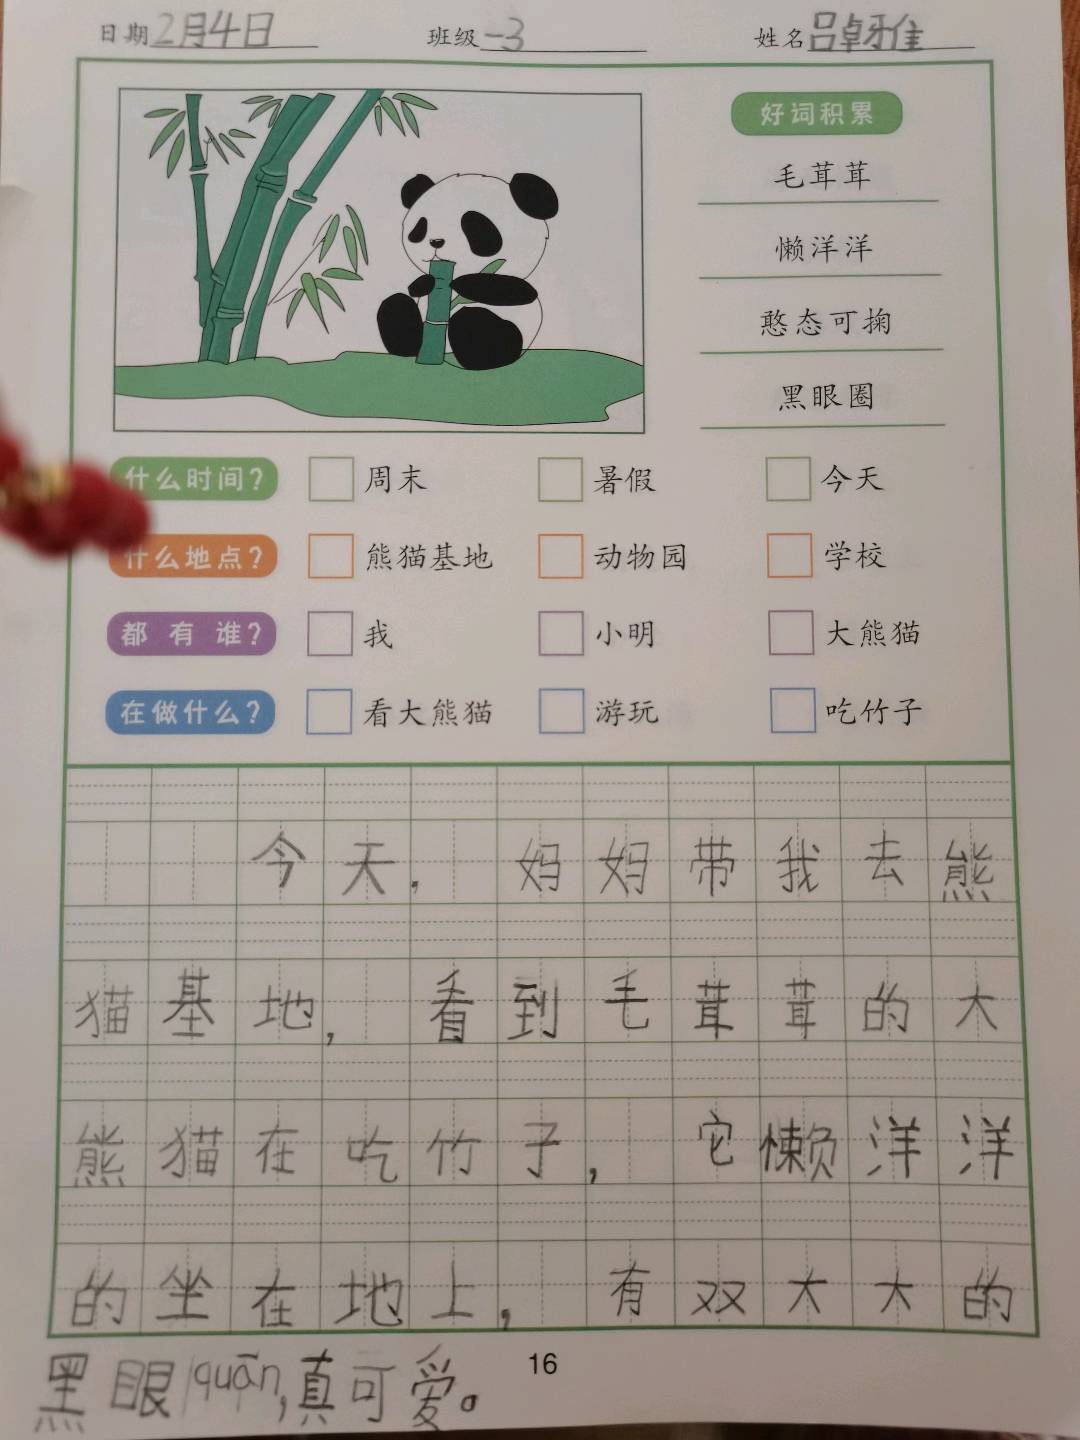 日期 2月4日 班级 一3 姓名 吕卓雅
好词积累
毛茸茸
懒洋洋
憨态可掬
黑眼圈
什么时间? 周末 暑假 今天
什么地点? 熊猫基地 动物园 学校
都有谁? 我 小明 大熊猫
在做什么? 看大熊猫 游玩 吃竹子
今天,妈妈带我去熊
猫基地,看到毛茸茸的大
熊猫在吃竹子,它懒洋洋
的坐在地上,有双大大的
黑眼quān,真可爱。
16